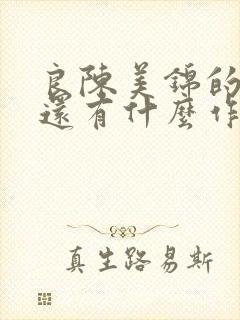 良陳美錦的
還有什麼作
真生路易斯